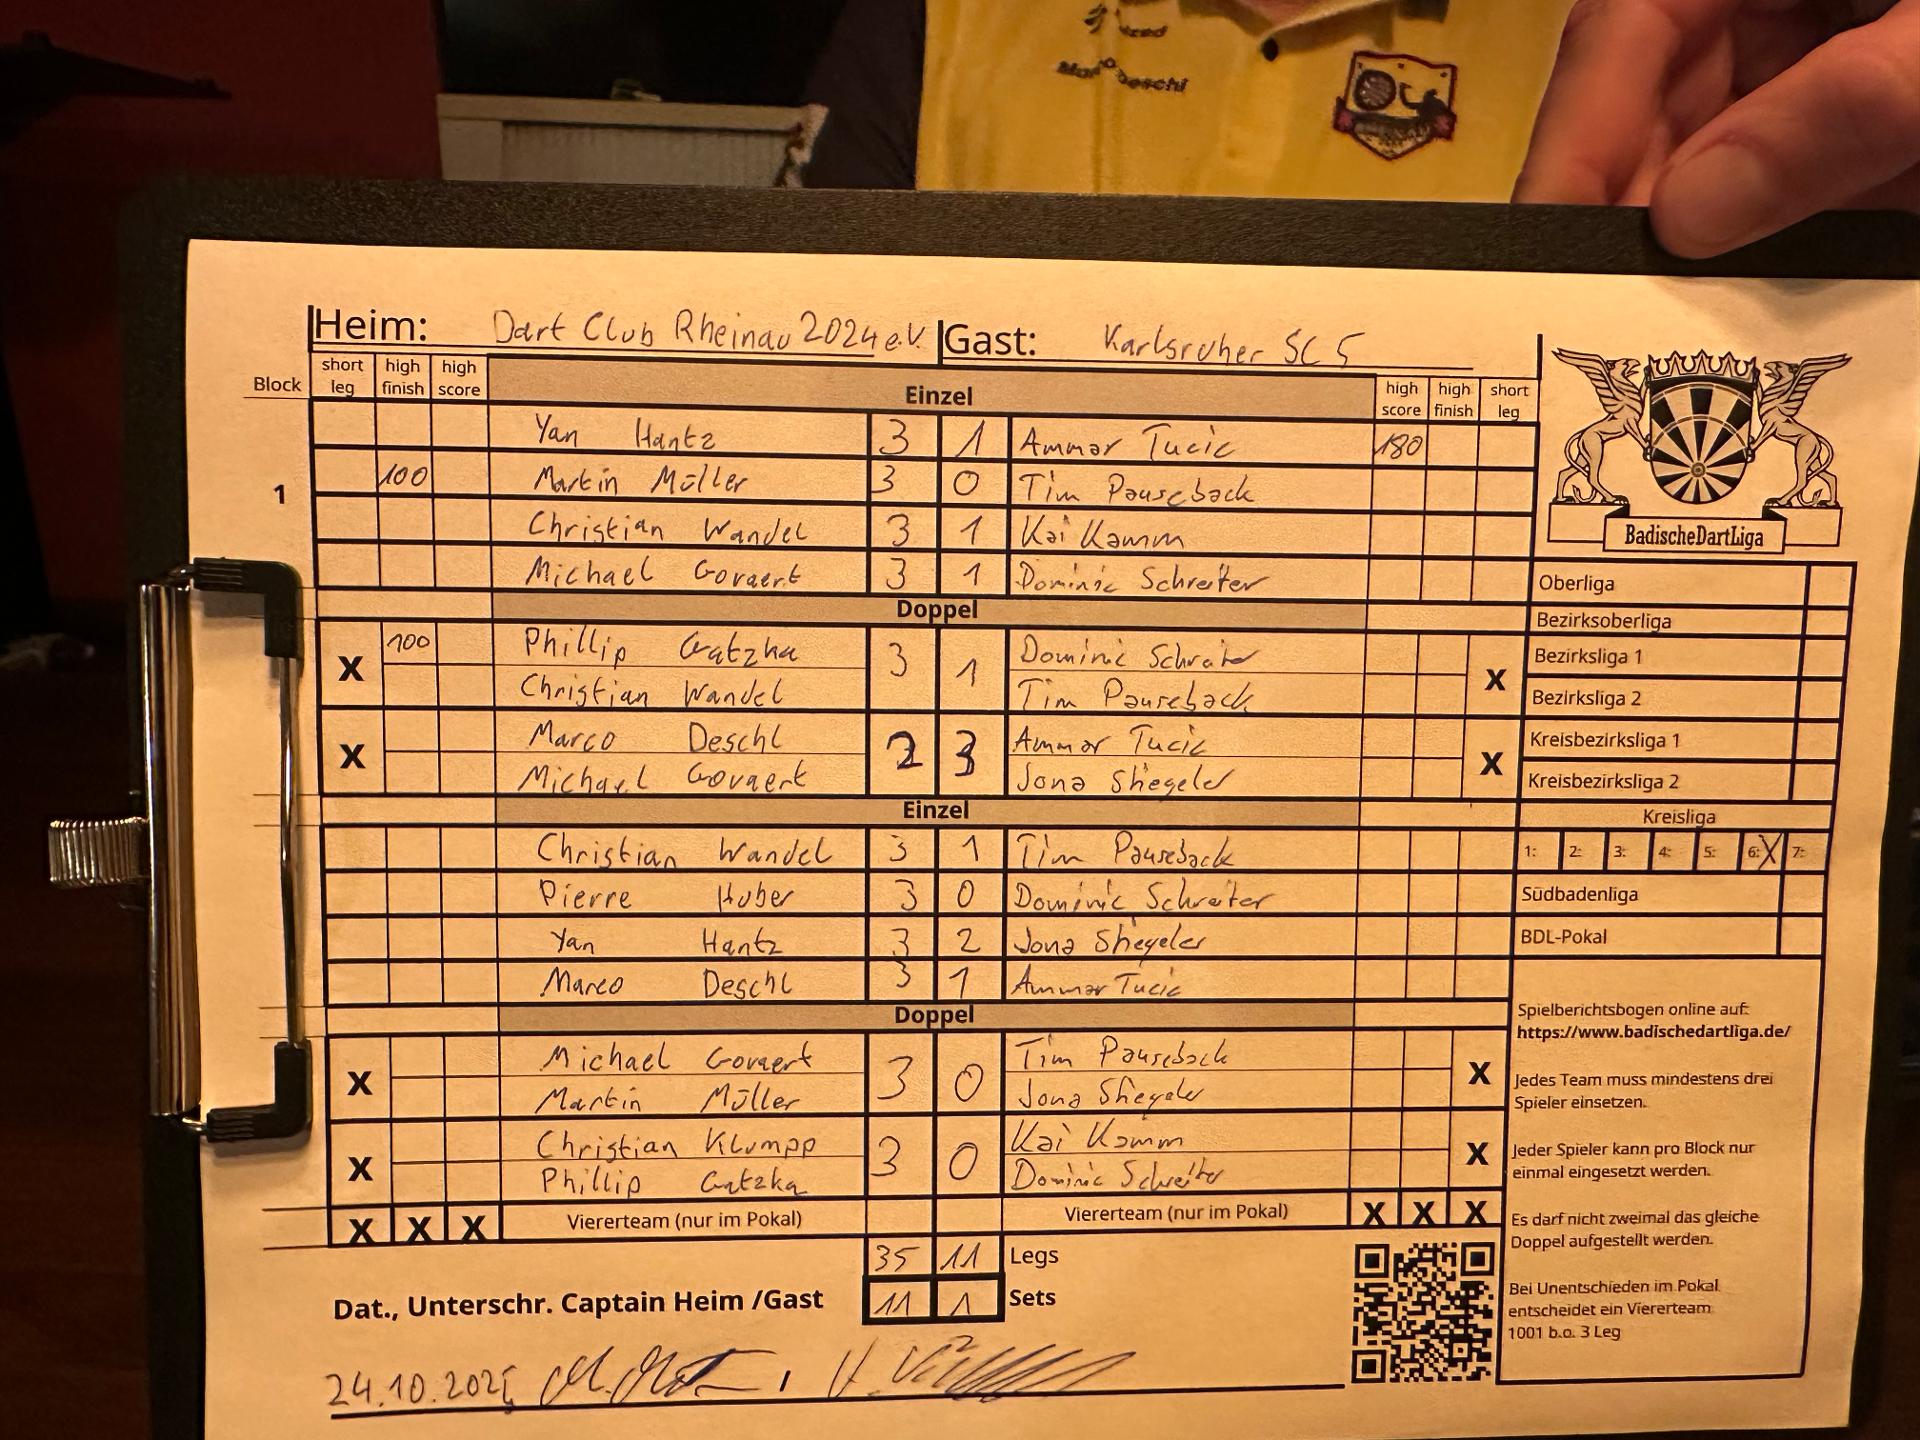 Heim: Dart Club Rheinau 2024 e.V. Gast: Karlsruher SC 5
Block short leg high finish high score Einzel high score high finish short leg
Yan Hantz 3 1 Ammar Tucic 180
1 100 Martin Müller 3 0 Tim Pauseback
Christian Wandel 3 1 Kai Kamm
Michael Govaert 3 1 Dominic Schreiter
Doppel
X 100 Phillip Gatzka 3 1 Dominic Schreiter X
Christian Wandel Tim Pauseback
X Marco Deschl 2 3 Ammar Tucic X
Michael Govaert Jona Stiegeler
Einzel
Christian Wandel 3 1 Tim Pauseback
Pierre Huber 3 0 Dominic Schreiter
Yan Hantz 3 2 Jona Stiegeler
Marco Deschl 3 1 Ammar Tucic
Doppel
X Michael Govaert 3 0 Tim Pauseback X
Martin Müller Jona Stiegeler
X Christian Klumpp 3 0 Kai Kamm X
Phillip Gatzka Dominic Schreiter
X X X Viererteam (nur im Pokal) Viererteam (nur im Pokal) X X X
35 11 Legs
Dat., Unterschr. Captain Heim /Gast 11 1 Sets
24.10.2025
BadischeDartLiga
Oberliga
Bezirksoberliga
Bezirksliga 1
Bezirksliga 2
Kreisbezirksliga 1
Kreisbezirksliga 2
Kreisliga
1: 2: 3: 4: 5: 6: X 7:
Südbadenliga
BDL-Pokal
Spielberichtsbogen online auf:
https://www.badischedartliga.de/
Jedes Team muss mindestens drei
Spieler einsetzen.
Jeder Spieler kann pro Block nur
einmal eingesetzt werden.
Es darf nicht zweimal das gleiche
Doppel aufgestellt werden.
Bei Unentschieden im Pokal
entscheidet ein Viererteam
1001 b.o. 3 Leg